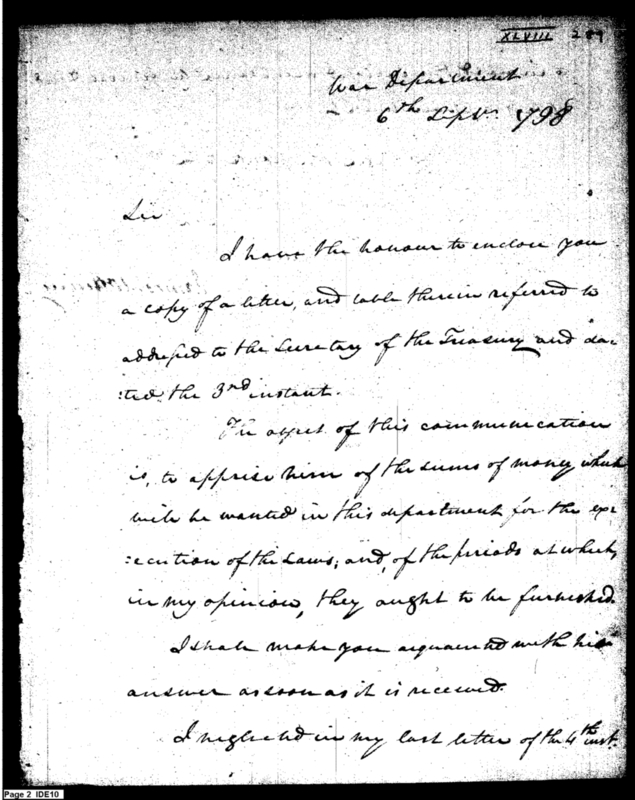 XLVIII 289
War Department
6th Septr. 1798
Sir
I have the honour to enclose you
a copy of a letter, and table therein referred to
addressed to the Secretary of the Treasury and da-
:ted the 3rd instant.
The object of this communication
is, to apprise him of the sums of money which
will be wanted in this department for the ex-
:ecution of the Laws; and, of the periods at which,
in my opinion, they ought to be furnished.
I shall make you acquainted with his
answer as soon as it is received.
I neglected in my last letter of the 4th inst.
Page 2 IDE10